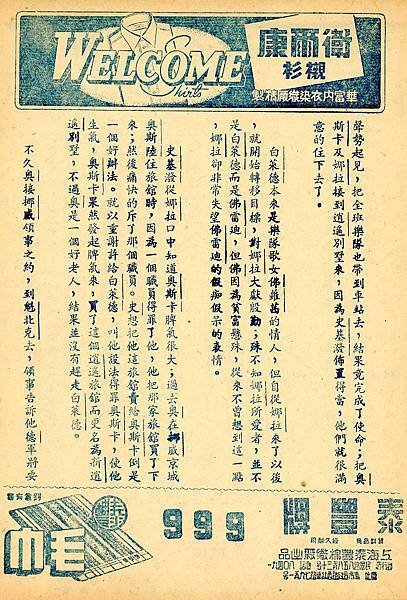 WELCOME
Shirts
衛爾康
襯衫
華富内衣染織廠精製
聲勢起見,把全班樂隊也帶到車站去,結果竟完成了使命;把奧
斯卡及娜拉接到逍遙別墅來,因為史基潑佈置得當,他們就很滿
意的住下去了。
白萊德本來是樂隊歌女佛蘿茜的情人,但自從娜拉來了以後
,就開始轉移目標,對娜拉大獻殷勤;殊不知娜拉所愛者,並不
是白萊德而是佛雷迪,但佛因為貧富懸殊,從來不曾想到這一點
,娜拉卻非常失望佛雷迪的假痴假呆的表情。
史基潑從娜拉口中知道奧斯卡脾氣很大;過去奧在挪威京城
奧斯陸住旅館時,因為一個職員得罪了他,他把那家旅館買了下
來;然後痛快的斥了那個職員。史想把他這旅館賣給奧斯卡倒是
一個好辦法。就以重謝許給白萊德,叫他設法得罪奧斯卡,使他
生氣,奧斯卡果然發起脾氣來,買了這個逍遙旅館而更名為新逍
遙別墅,不過奧是一個好老人,結果並沒有趕走白萊德。
不久奧接挪威領事之約,到魁北克去,領事告訴他德軍將要
泰豐牌
999
毛巾
上海泰豐棉織廠出品